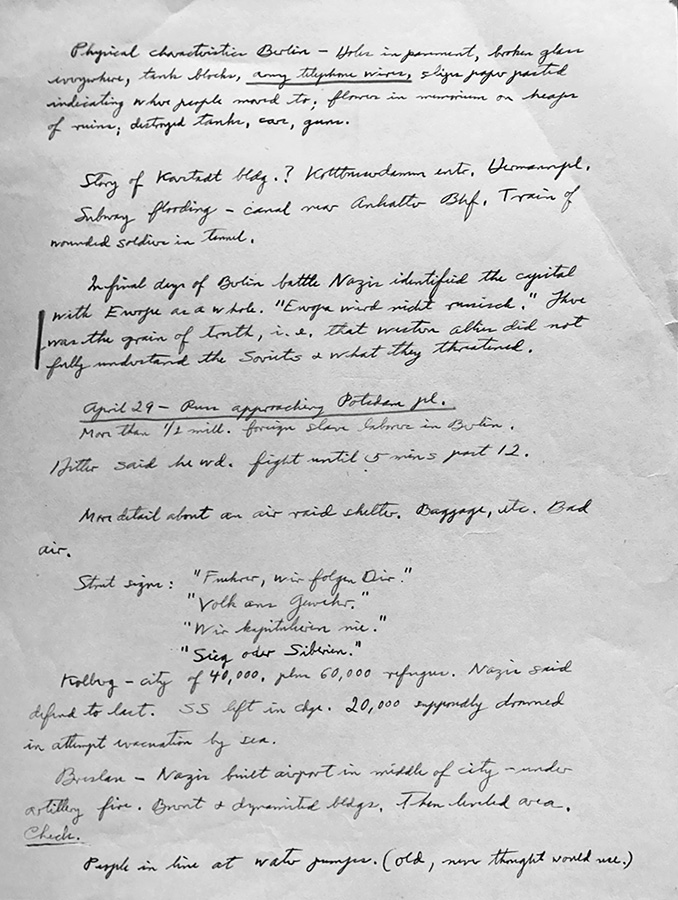 Physical characteristics Berlin – Holes in pavement, broken glass
everywhere, tank blocks, army telephone wires, slips paper pasted
indicating where people moved to; flowers in memorium on heaps
of ruins; destroyed tanks, cars, guns.
Story of Karstadt bldg.? Kottbuserdamm entr. Hermannpl.
Subway flooding – canal near Anhalter Bhf. Train of
wounded soldiers in tunnel.
In final days of Berlin battle Nazis identified the capital
with Europe as a whole. "Europa wird nicht russisch." There
was the grain of truth, i.e. that western allies did not
fully understand the Soviets & what they threatened.
April 29 – Russ approaching Potsdam pl.
More than 1/2 mill. foreign slave laborers in Berlin.
Hitler said he wd. fight until 5 mins past 12.
More detail about an air raid shelter. Baggage, etc. Bad
air.
Street signs: "Fuehrer, wir folgen Dir!"
"Volk ans Gewehr."
"Wir kapitulieren nie."
"Sieg oder Siberien."
Kolberg – city of 40,000, plus 60,000 refugees. Nazis said
defend to last. SS left in chge. 20,000 supposedly drowned
in attempt evacuation by sea.
Breslau – Nazis built airport in middle of city – under
artillery fire. Burnt & dynamited bldgs. Then leveled area.
Check.
People in line at water pumps. (old, never thought would use.)